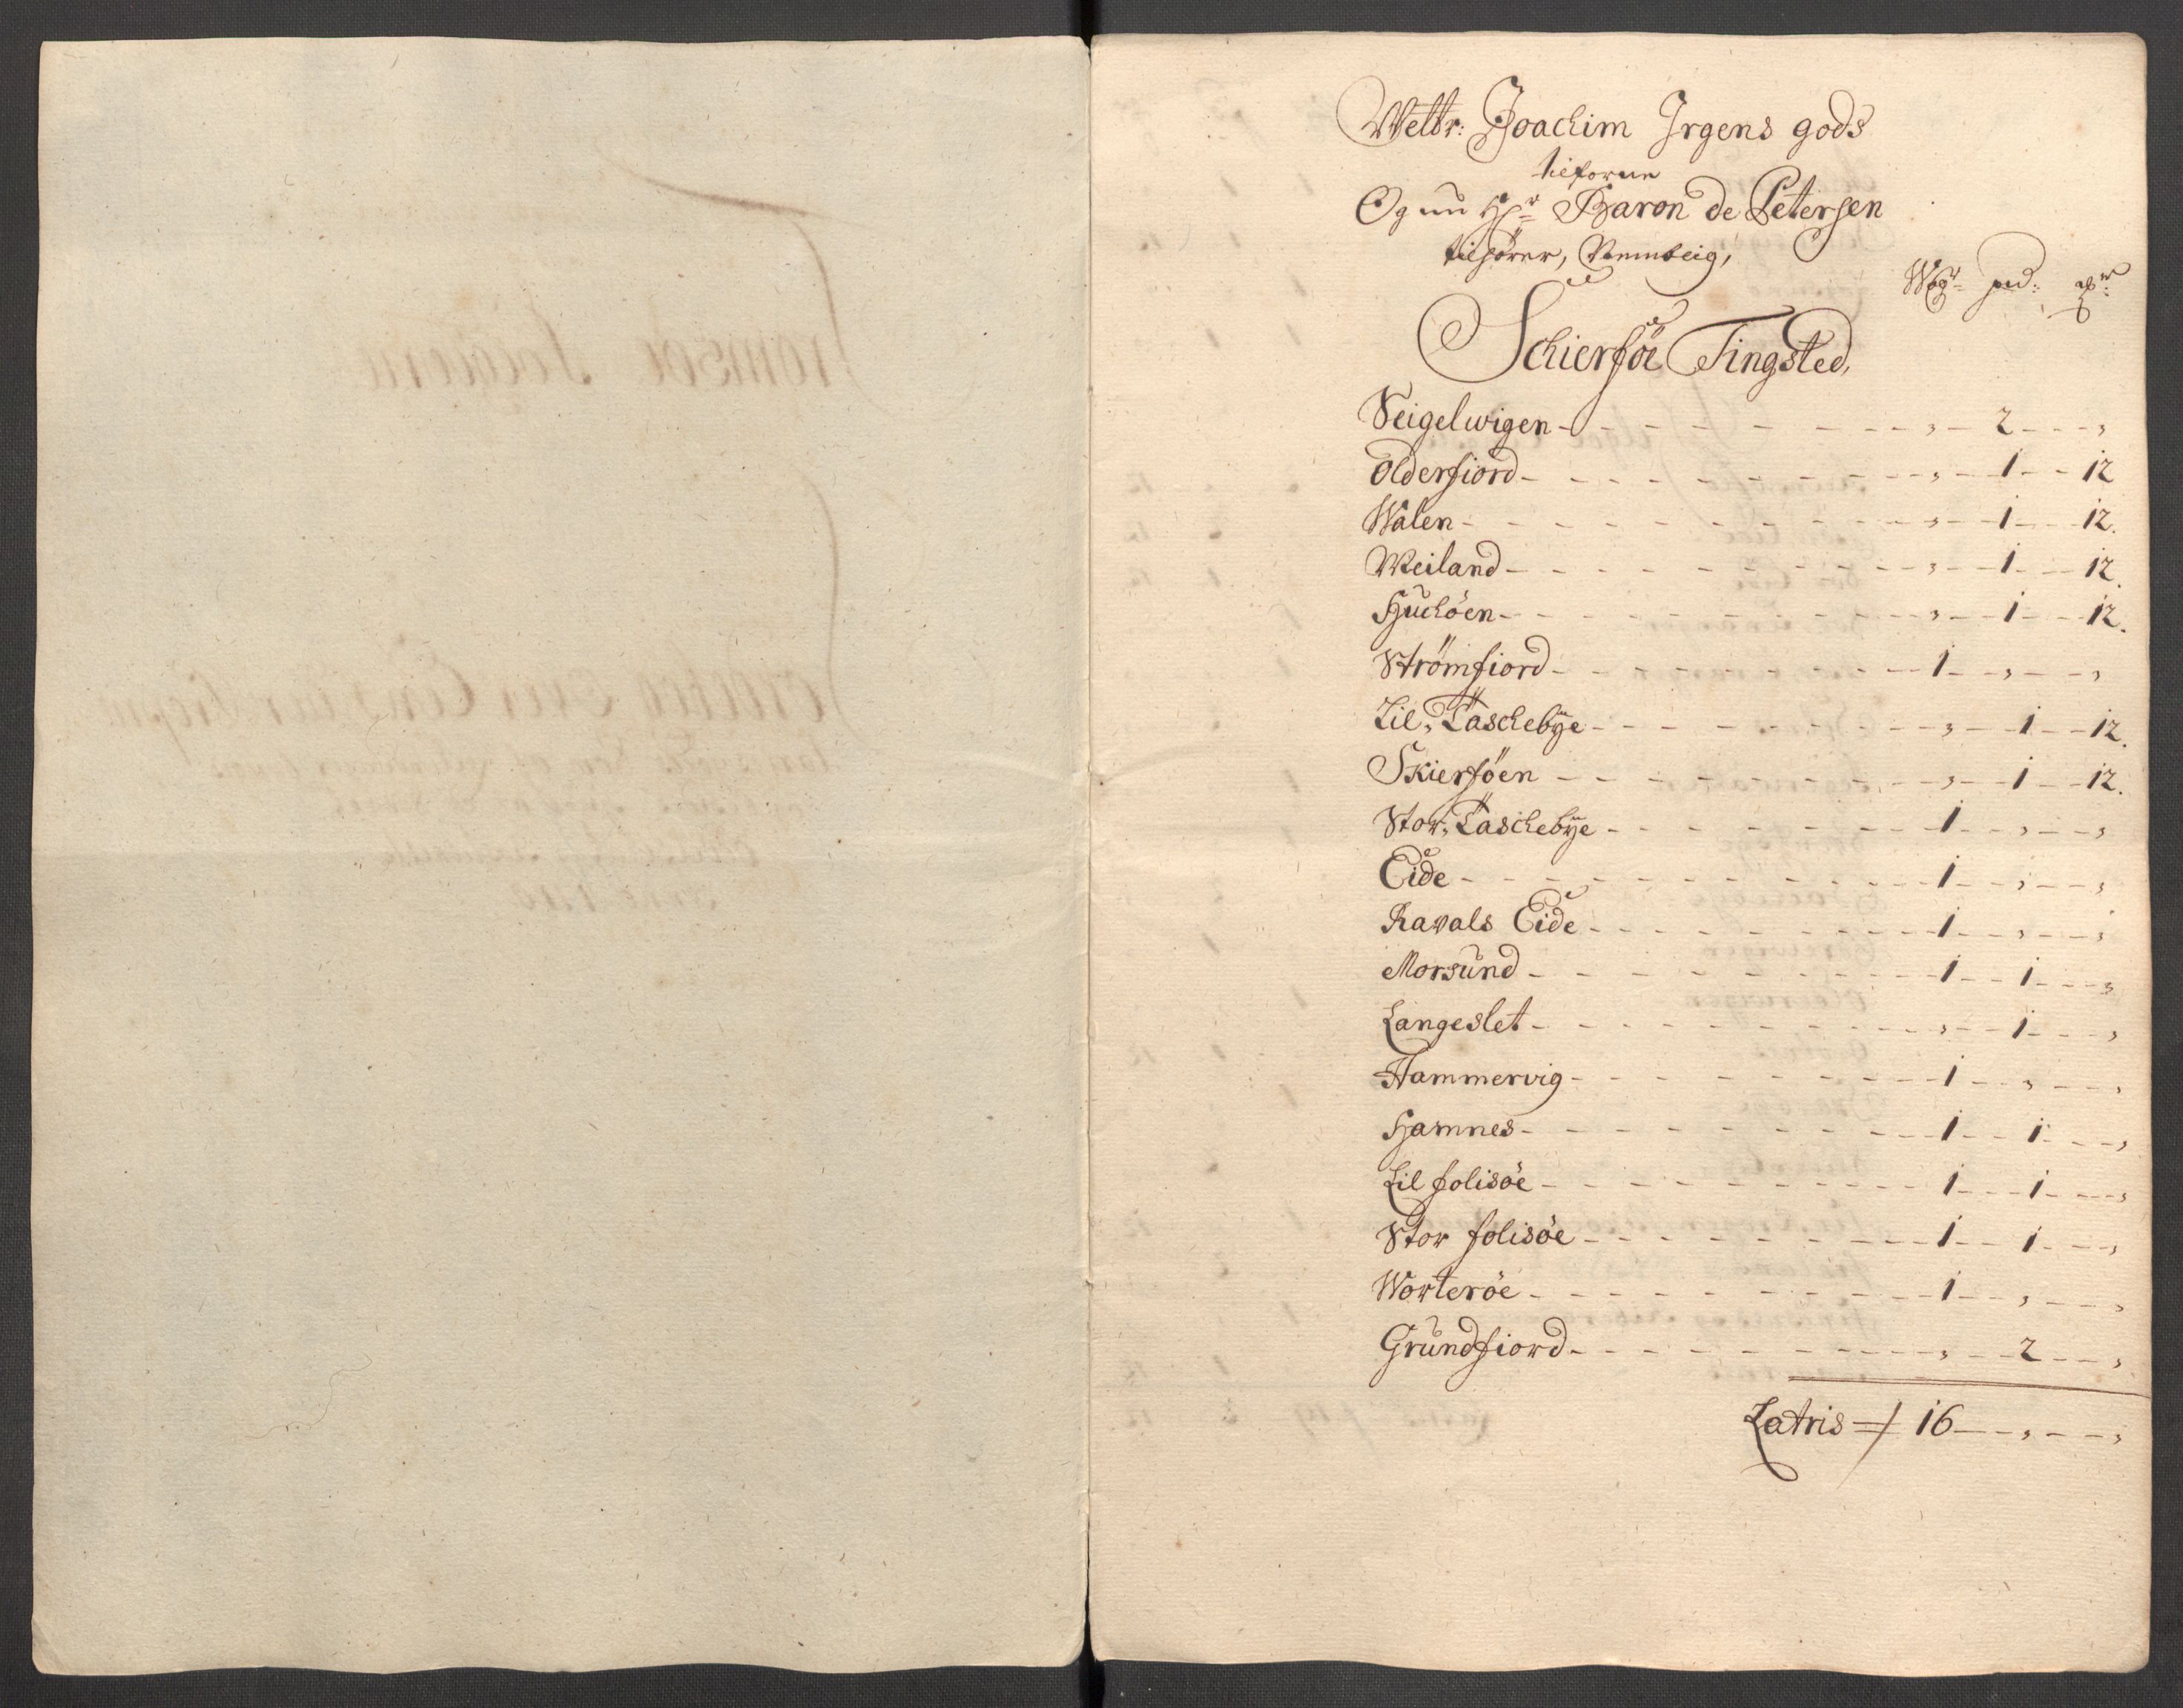 Welbr: Joachim Irgens gods
tilforne
Og nu Hr Baron de Petersen
tilhører,
Wogr pd:
Schierföe Tingsted,
Seigelwigen - - - „ - 2 - - „
Olderfiord - - - „ - 1 - - 12
Walen - - - „ - 1 - - 12.
Meiland - - - „ - 1 - - 12.
Huchöen - - - „ - 1 - - 12.
Strömfiord - - - 1 - „ - - „
Lil, Taschebÿe - - - „ - 1 - - 12.
Skierföen - - - „ - 1 - - 12.
Stor, Taschebÿe - - - 1 - „ - - „
Eide - - - 1 - „ - - „
Ravals Eide - - - 1 - „ - - „
Morsund - - - 1 - 1 - - „
Langeslet - - - „ - 1 - - „
Hammervig - - - 1 - „ - - „
Hamnes - - - 1 - 1 - - „
Lil folisöe - - - 1 - 1 - - „
Stor folisöe - - - 1 - 1 - - „
Worteröe - - - 1 - „ - - „
Grundfiord - - - „ - 2 - - „
Latris 16 - „ - - „